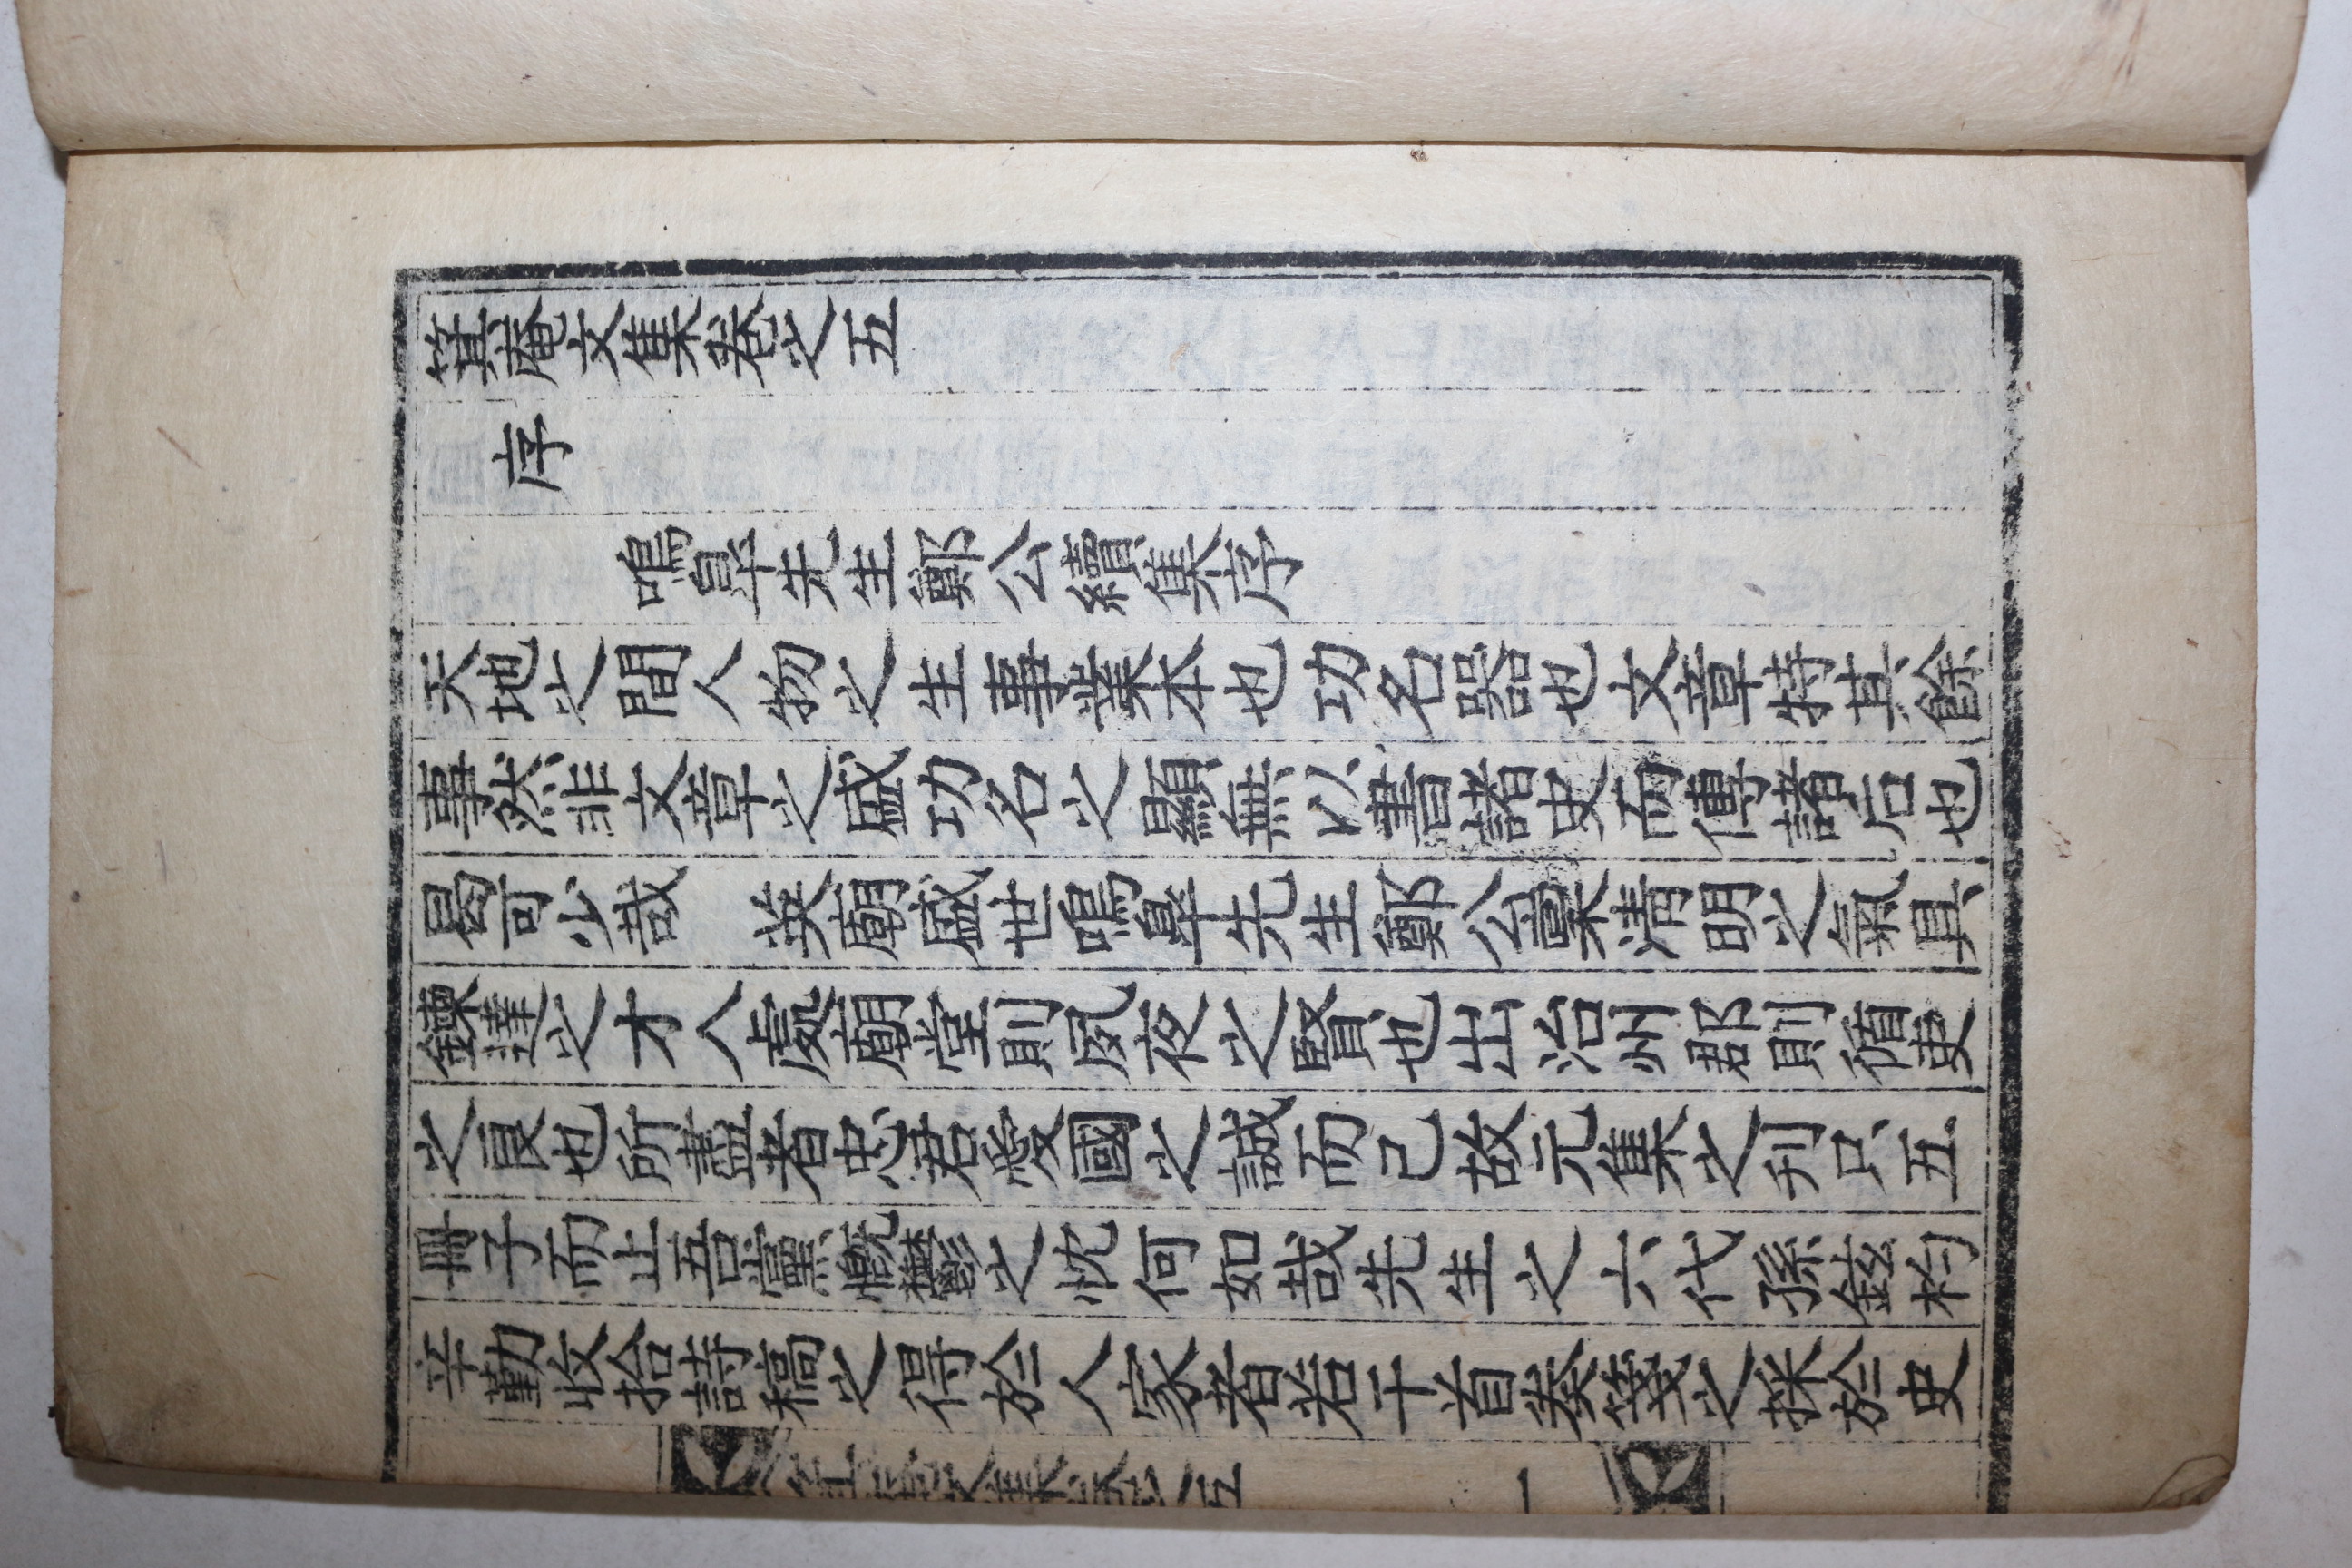 箕庵文集卷之五
序
鳴皐先生鄭公續集序
天地之間人物之生事業本也功名器也文章特其餘
事然非文章之盛功名之顯無以書諸史而傳諸后也
曷可少哉　英廟盛世鳴皐先生鄭公稟淸明之氣具
鍊達之才入處廟堂則夙夜之賢也出治州郡則循吏
之良也所盡者忠君愛國之誠而己故元集之刋只五
冊子而止吾黨慨鬱之忱何如哉先生之六代孫鉉杓
辛勤收拾詩稿之得於人家者若干首奏箋之採於史
文集卷五
一